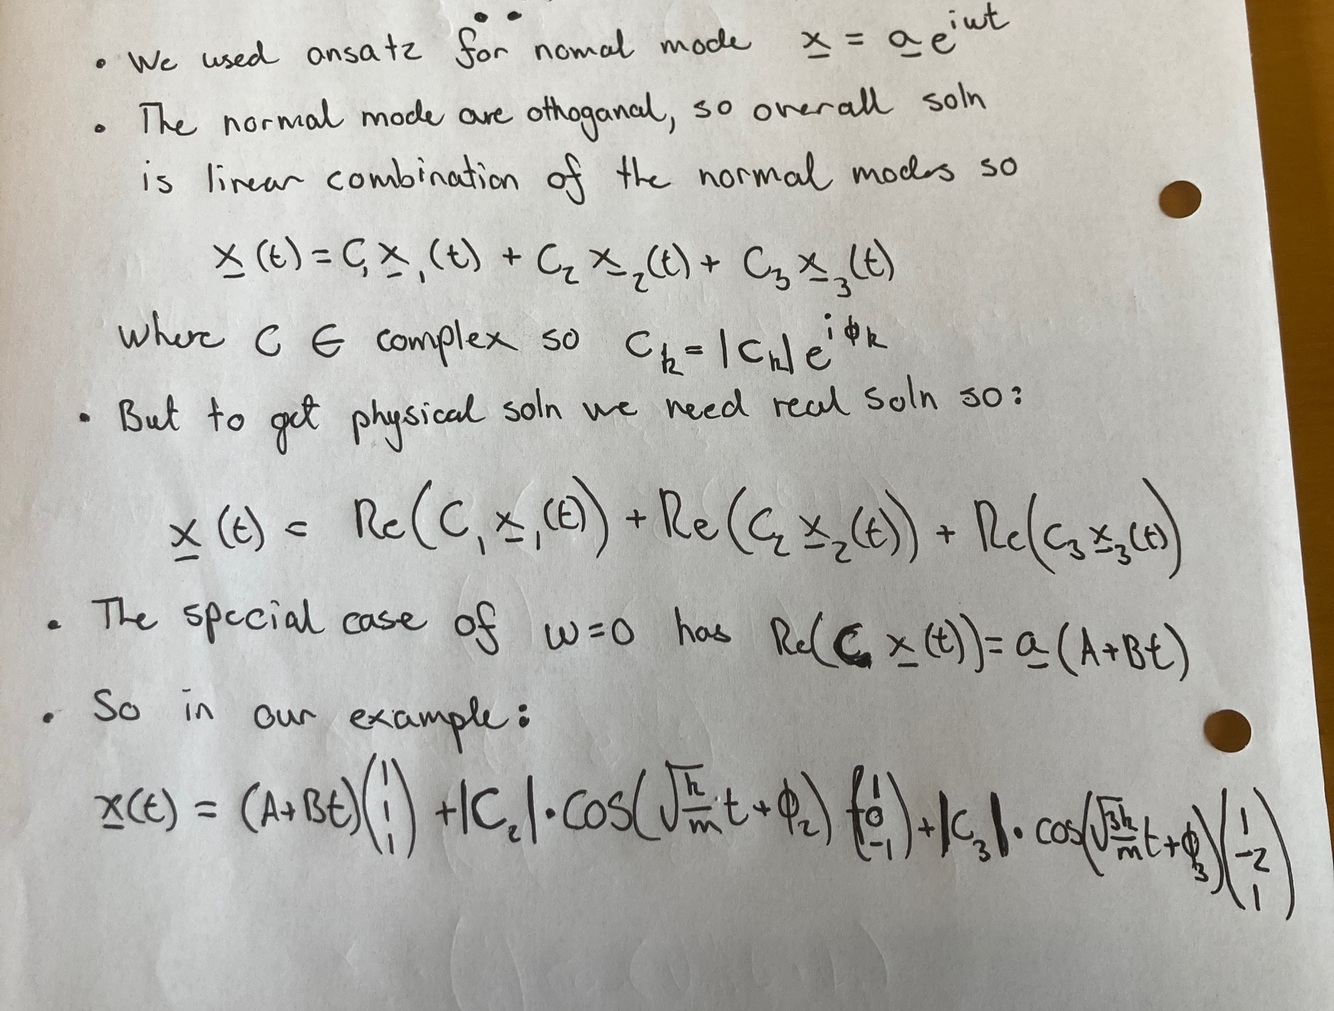 • We used ansatz for nomal mode x = a e^iwt
• The normal mode are othoganal, so overall soln
is linear combination of the normal modes so
x(t) = C₁x₁(t) + C₂x₂(t) + C₃x₃(t)
where C ∈ complex so C_k = |C_k|e^iϕ_k
• But to get physical soln we need real soln so:
x(t) = Re(C₁x₁(t)) + Re(C₂x₂(t)) + Re(C₃x₃(t))
• The special case of w=0 has Re(C x(t)) = a(A+Bt)
• So in our example:
x(t) = (A+Bt)(1 1 1) + |C₂|·cos(√k/m t + ϕ₂)(1 0 -1) + |C₃|·cos(√3k/m t + ϕ₃)(1 -2 1)